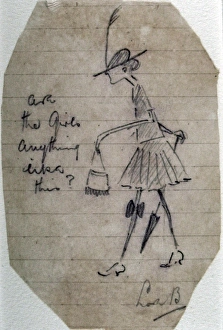 are
the Girls
anything
like
this?